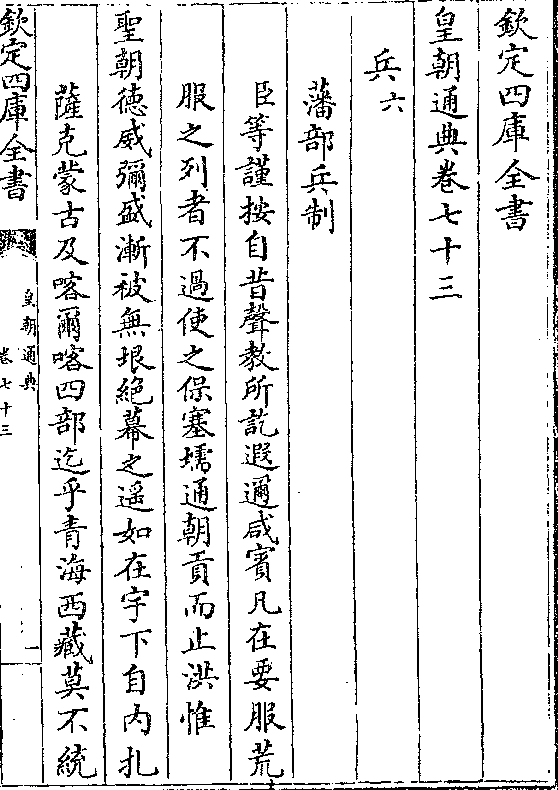 欽定四庫全書
皇朝通典卷七十三
兵六
藩部兵制
臣等謹按自昔聲教所訖遐邇咸賓凡在要服荒
服之列者不過使之保塞壖通朝貢而止洪惟
聖朝德威彌盛漸被無垠絶幕之遥如在宇下自内扎
薩克蒙古及喀爾喀四部迄乎青海西藏莫不統
欽定四庫全書
皇朝通典
卷七十三
一